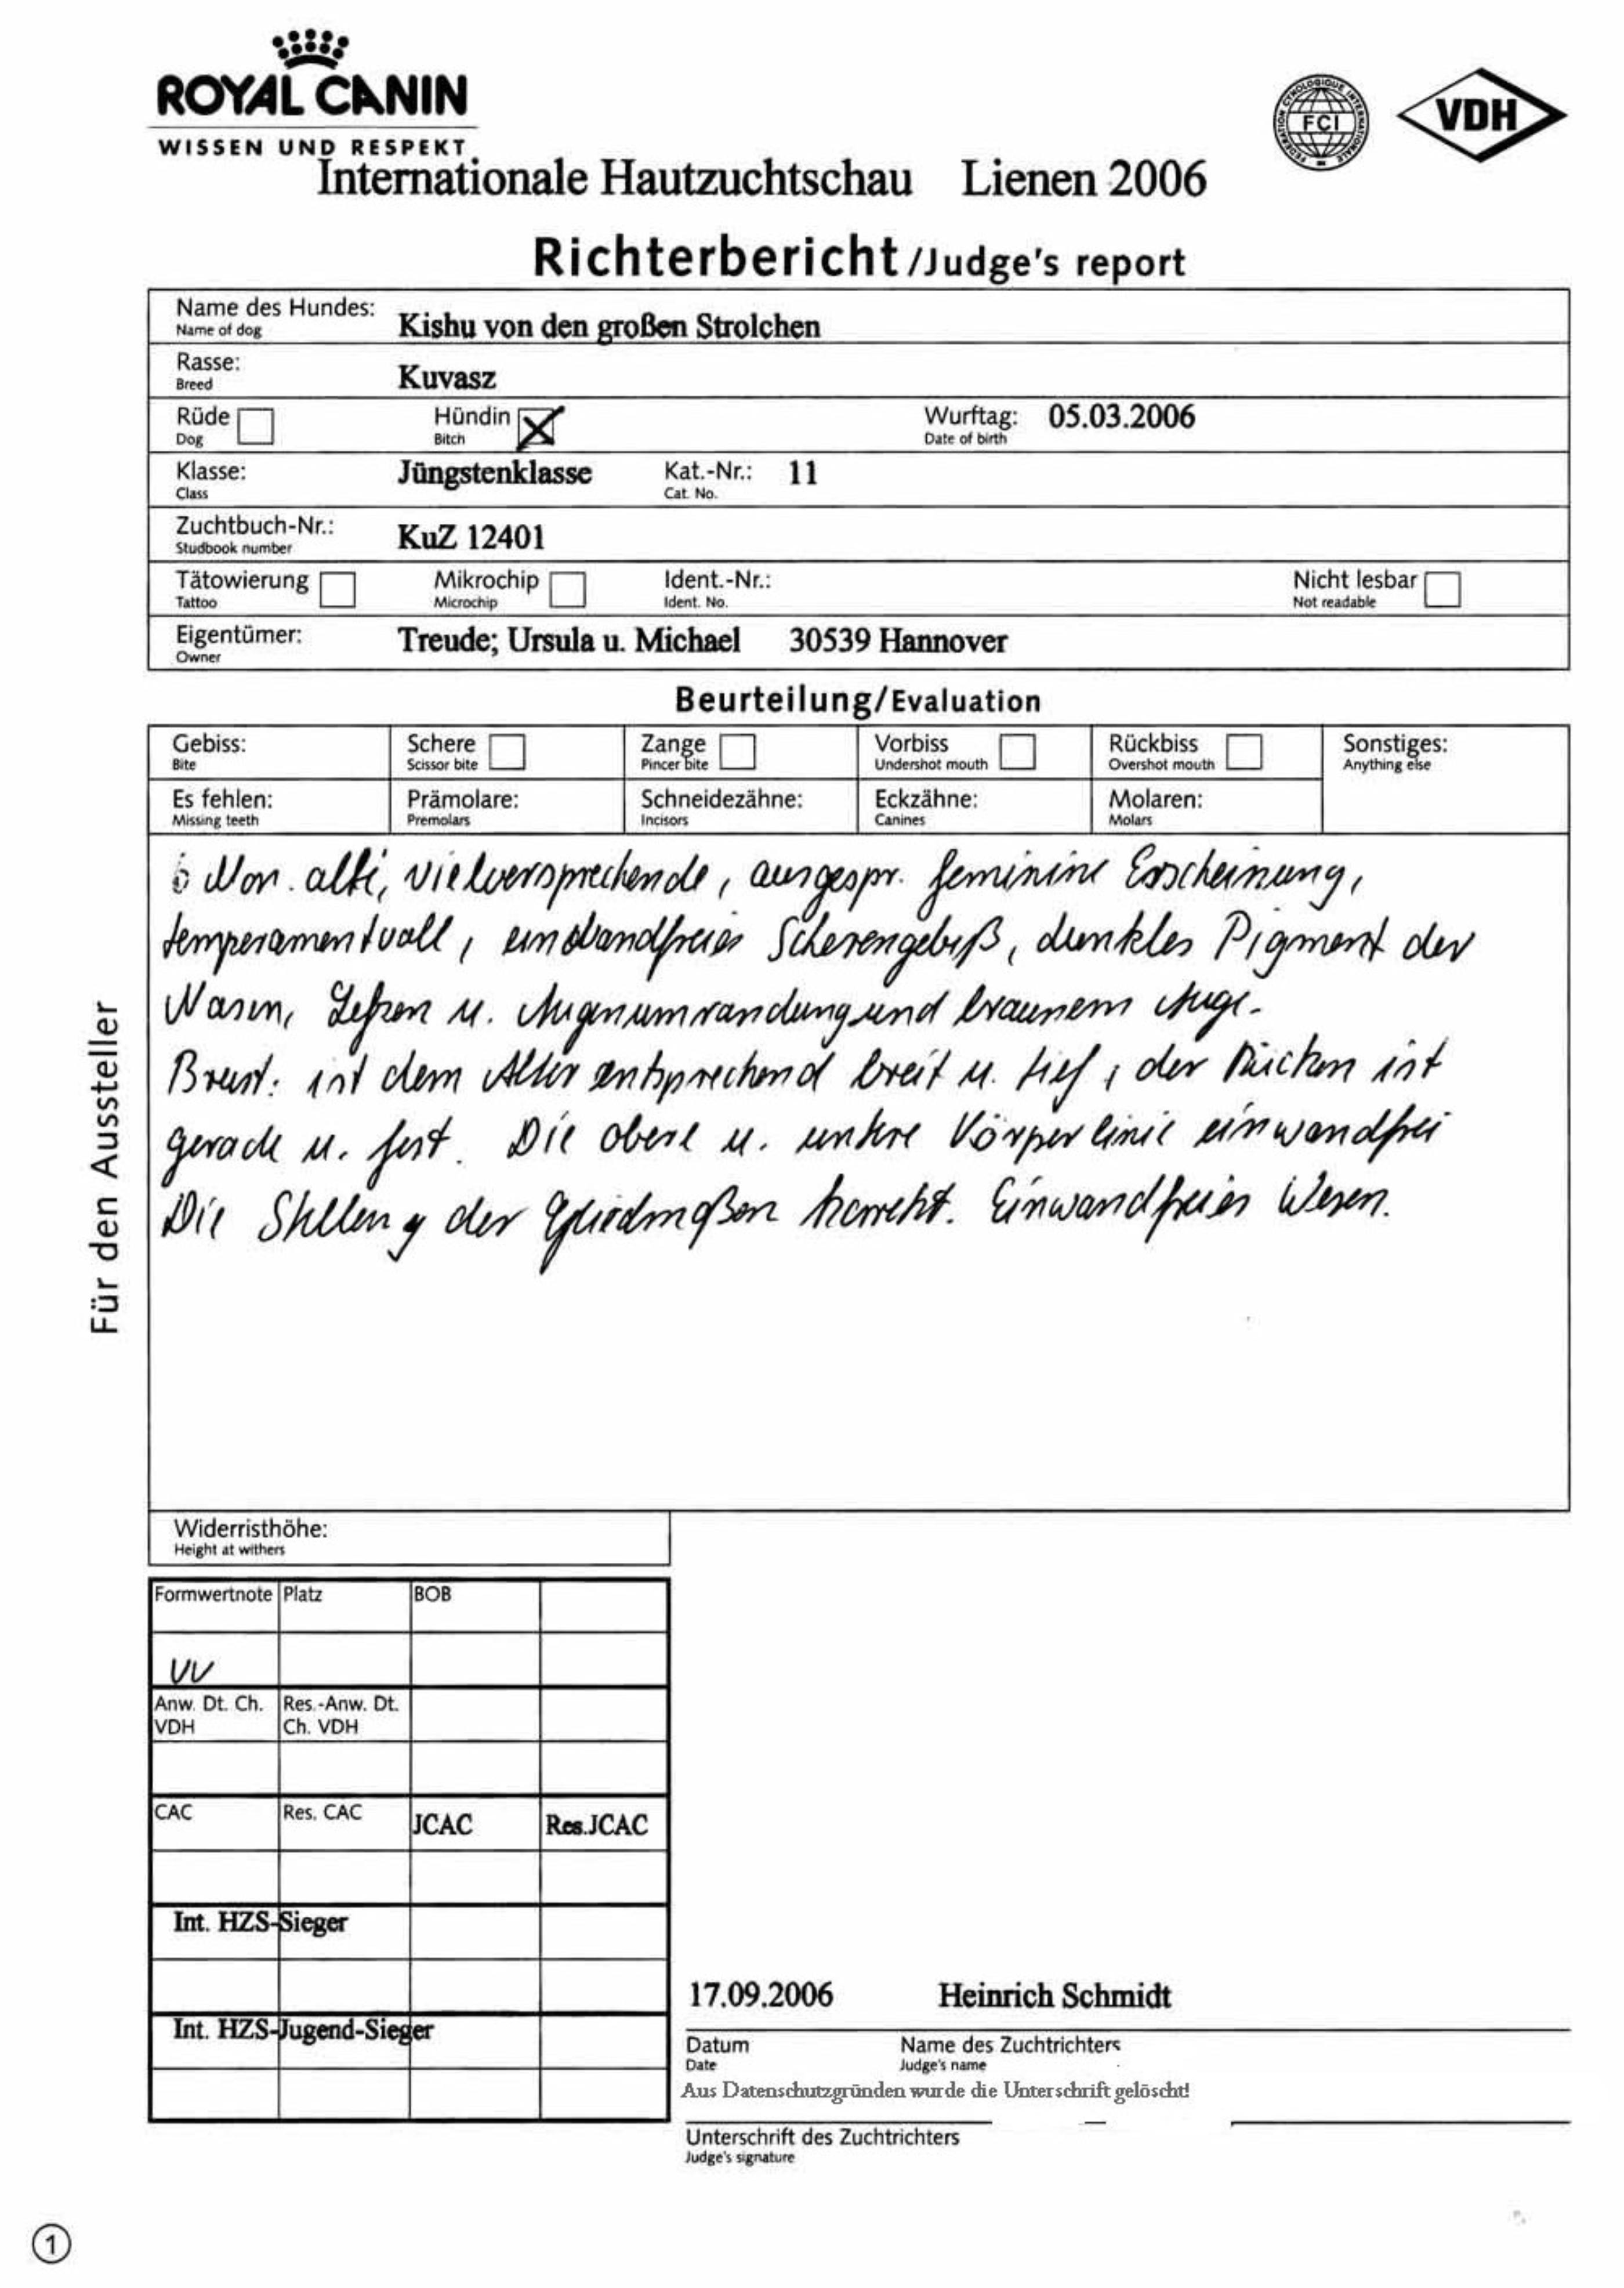 ROYAL CANIN
WISSEN UND RESPEKT
FEDERATION CYNOLOGIQUE INTERNATIONALE
FCI
VDH
Internationale Hautzuchtschau Lienen 2006
Richterbericht/Judge's report
Name des Hundes: Kishu von den großen Strolchen
Name of dog
Rasse: Kuvasz
Breed
Rüde Hündin Wurftag: 05.03.2006
Dog Bitch Date of birth
Klasse: Jüngstenklasse Kat.-Nr.: 11
Class Cat. No.
Zuchtbuch-Nr.: KuZ 12401
Studbook number
Tätowierung Mikrochip Ident.-Nr.: Nicht lesbar
Tattoo Microchip Ident. No. Not readable
Eigentümer: Treude; Ursula u. Michael 30539 Hannover
Owner
Beurteilung/Evaluation
Gebiss: Schere Zange Vorbiss Rückbiss Sonstiges:
Bite Scissor bite Pincer bite Undershot mouth Overshot mouth Anything else
Es fehlen: Prämolare: Schneidezähne: Eckzähne: Molaren:
Missing teeth Premolars Incisors Canines Molars
6 Mon. alte, vielversprechende, ausgespr. feminine Erscheinung,
temperamentvoll, einwandfreies Scherengebiß, dunkles Pigment der
Nasen, Lefzen u. Augenumrandung und braunem Auge.
Brust: ist dem Alter entsprechend breit u. tief, der Rücken ist
gerade u. fest. Die obere u. untere Körperlinie einwandfrei
Die Stellung der Gliedmaßen korrekt. Einwandfreies Wesen.
Für den Aussteller
Widerristhöhe:
Height at withers
Formwertnote Platz BOB
VV
Anw. Dt. Ch. Res.-Anw. Dt.
VDH Ch. VDH
CAC Res. CAC JCAC Res.JCAC
Int. HZS-Sieger
Int. HZS-Jugend-Sieger
17.09.2006 Heinrich Schmidt
Datum Name des Zuchtrichters
Date Judge's name
Aus Datenschutzgründen wurde die Unterschrift gelöscht!
Unterschrift des Zuchtrichters
Judge's signature
1